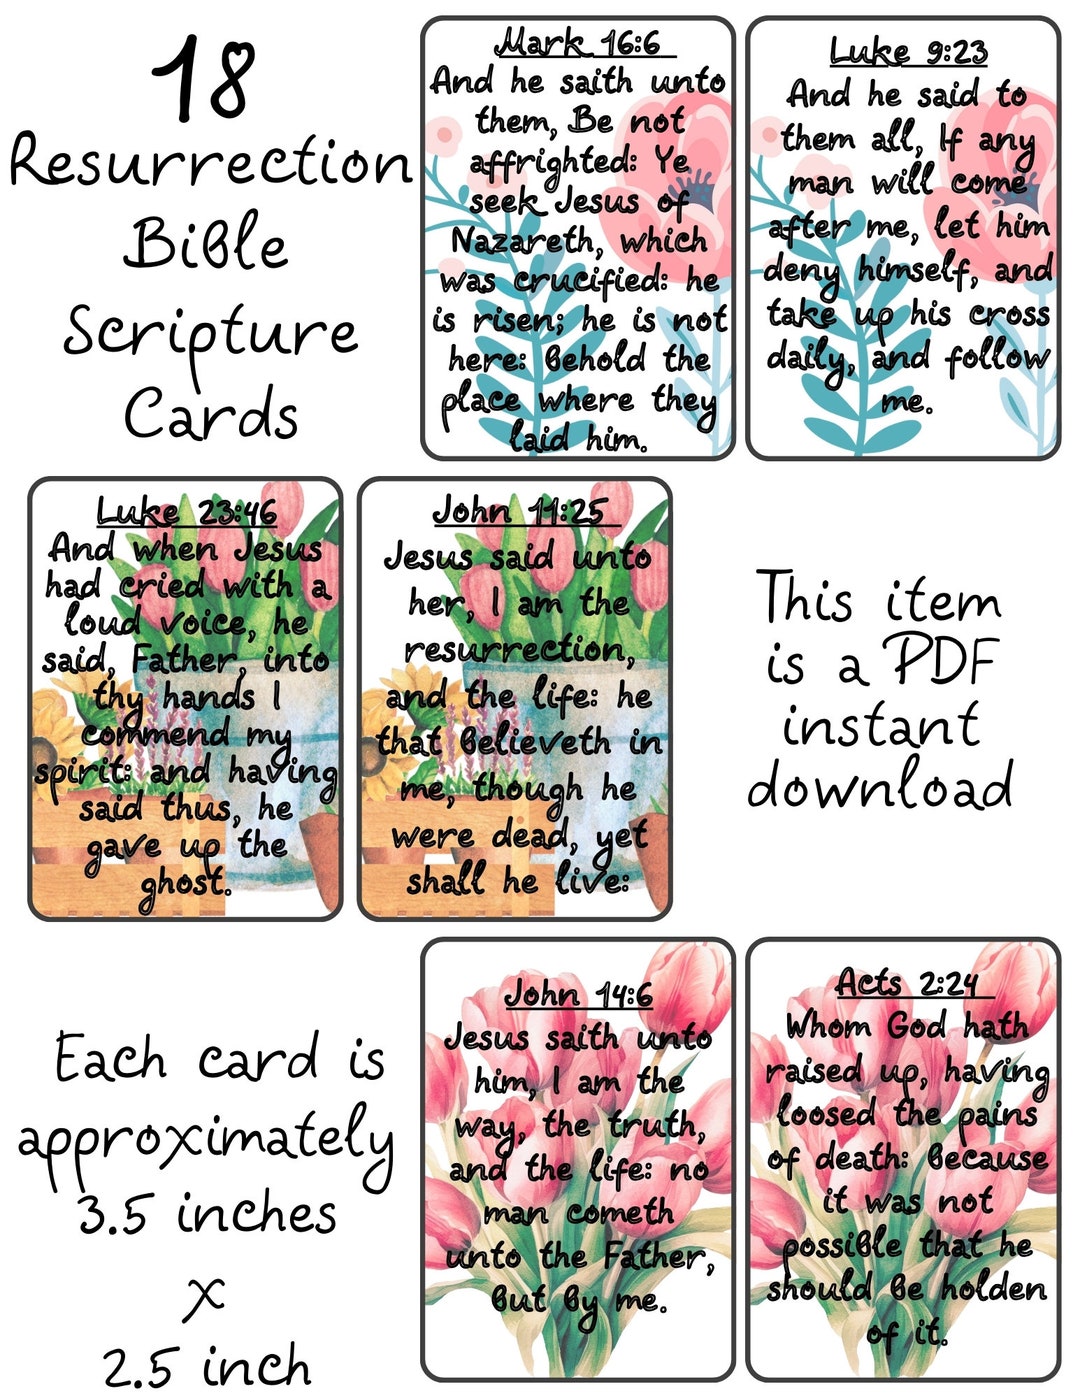 18
Resurrection
Bible
Scripture
Cards
Mark 16:6
And he saith unto
them, Be not
affrighted: Ye
seek Jesus of
Nazareth, which
was crucified: he
is risen; he is not
here: behold the
place where they
laid him.
Luke 9:23
And he said to
them all, If any
man will come
after me, let him
deny himself, and
take up his cross
daily, and follow
me.
Luke 23:46
And when Jesus
had cried with a
loud voice, he
said, Father, into
thy hands I
commend my
spirit: and having
said thus, he
gave up the
ghost.
John 11:25
Jesus said unto
her, I am the
resurrection,
and the life: he
that believeth in
me, though he
were dead, yet
shall he live:
This item
is a PDF
instant
download
Each card is
approximately
3.5 inches
x
2.5 inch
John 14:6
Jesus saith unto
him, I am the
way, the truth,
and the life: no
man cometh
unto the Father,
but by me.
Acts 2:24
Whom God hath
raised up, having
loosed the pains
of death: because
it was not
possible that he
should be holden
of it.